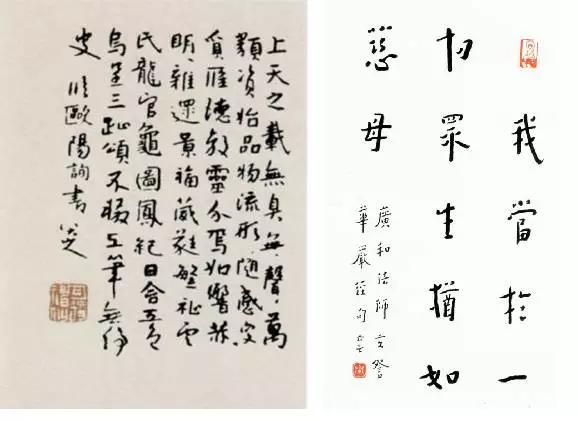 上天之載無臭無聲萬
類資始品物流形隨感變
質應德效靈介焉如響赫
明雜還景福葳蕤繁祉雲
氏龍官龜圖鳳紀日含五色
烏呈三趾頌不輟工筆無停
史 臨歐陽詢書 八大
我當於一
切眾生猶如
慈母
廣和法師玄詧
華嚴經句